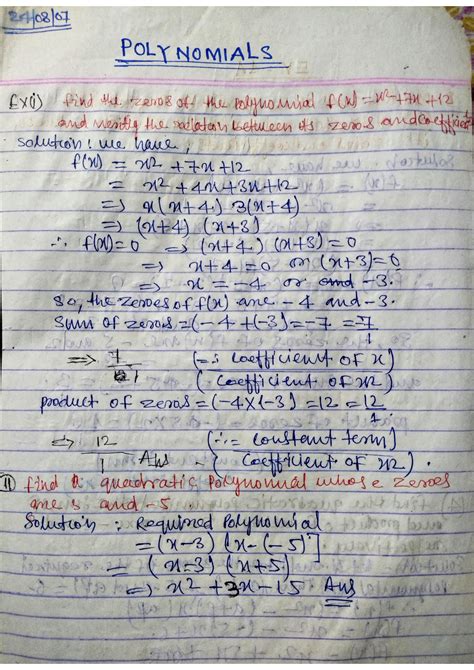 24/08/07
POLYNOMIALS
Ex(i) find the zeros of the polynomial f(x) = x²+7x+12
and verify the relation between its zeros and coefficient
Solution: we have,
f(x) = x² + 7x+12
= x² +4x+3x+12
=> x(x+4) 3(x+4)
=> (x+4) (x+3)
∴ f(x)=0 => (x+4) (x+3)=0
=> x+4=0 or (x+3)=0
=> x = -4 or and -3.
So, the zeroes of f(x) are -4 and -3.
Sum of zeros =(-4+(-3)=-7 = -7/1
=> 7/1 (-: coefficient of x)
(coefficient of x2)
product of zeros = (-4x(-3) =12 = 12/1
=> 12/1 Ans (∴ = constant term)
(coefficient of x2).
(11) find a quadratic polynomial whose zeroes
are 3 and -5.
Solution : Required Polynomial
= (x-3) [x-(-5)]
= (x-3) (x+5)
=> x² +3x-15 Ans